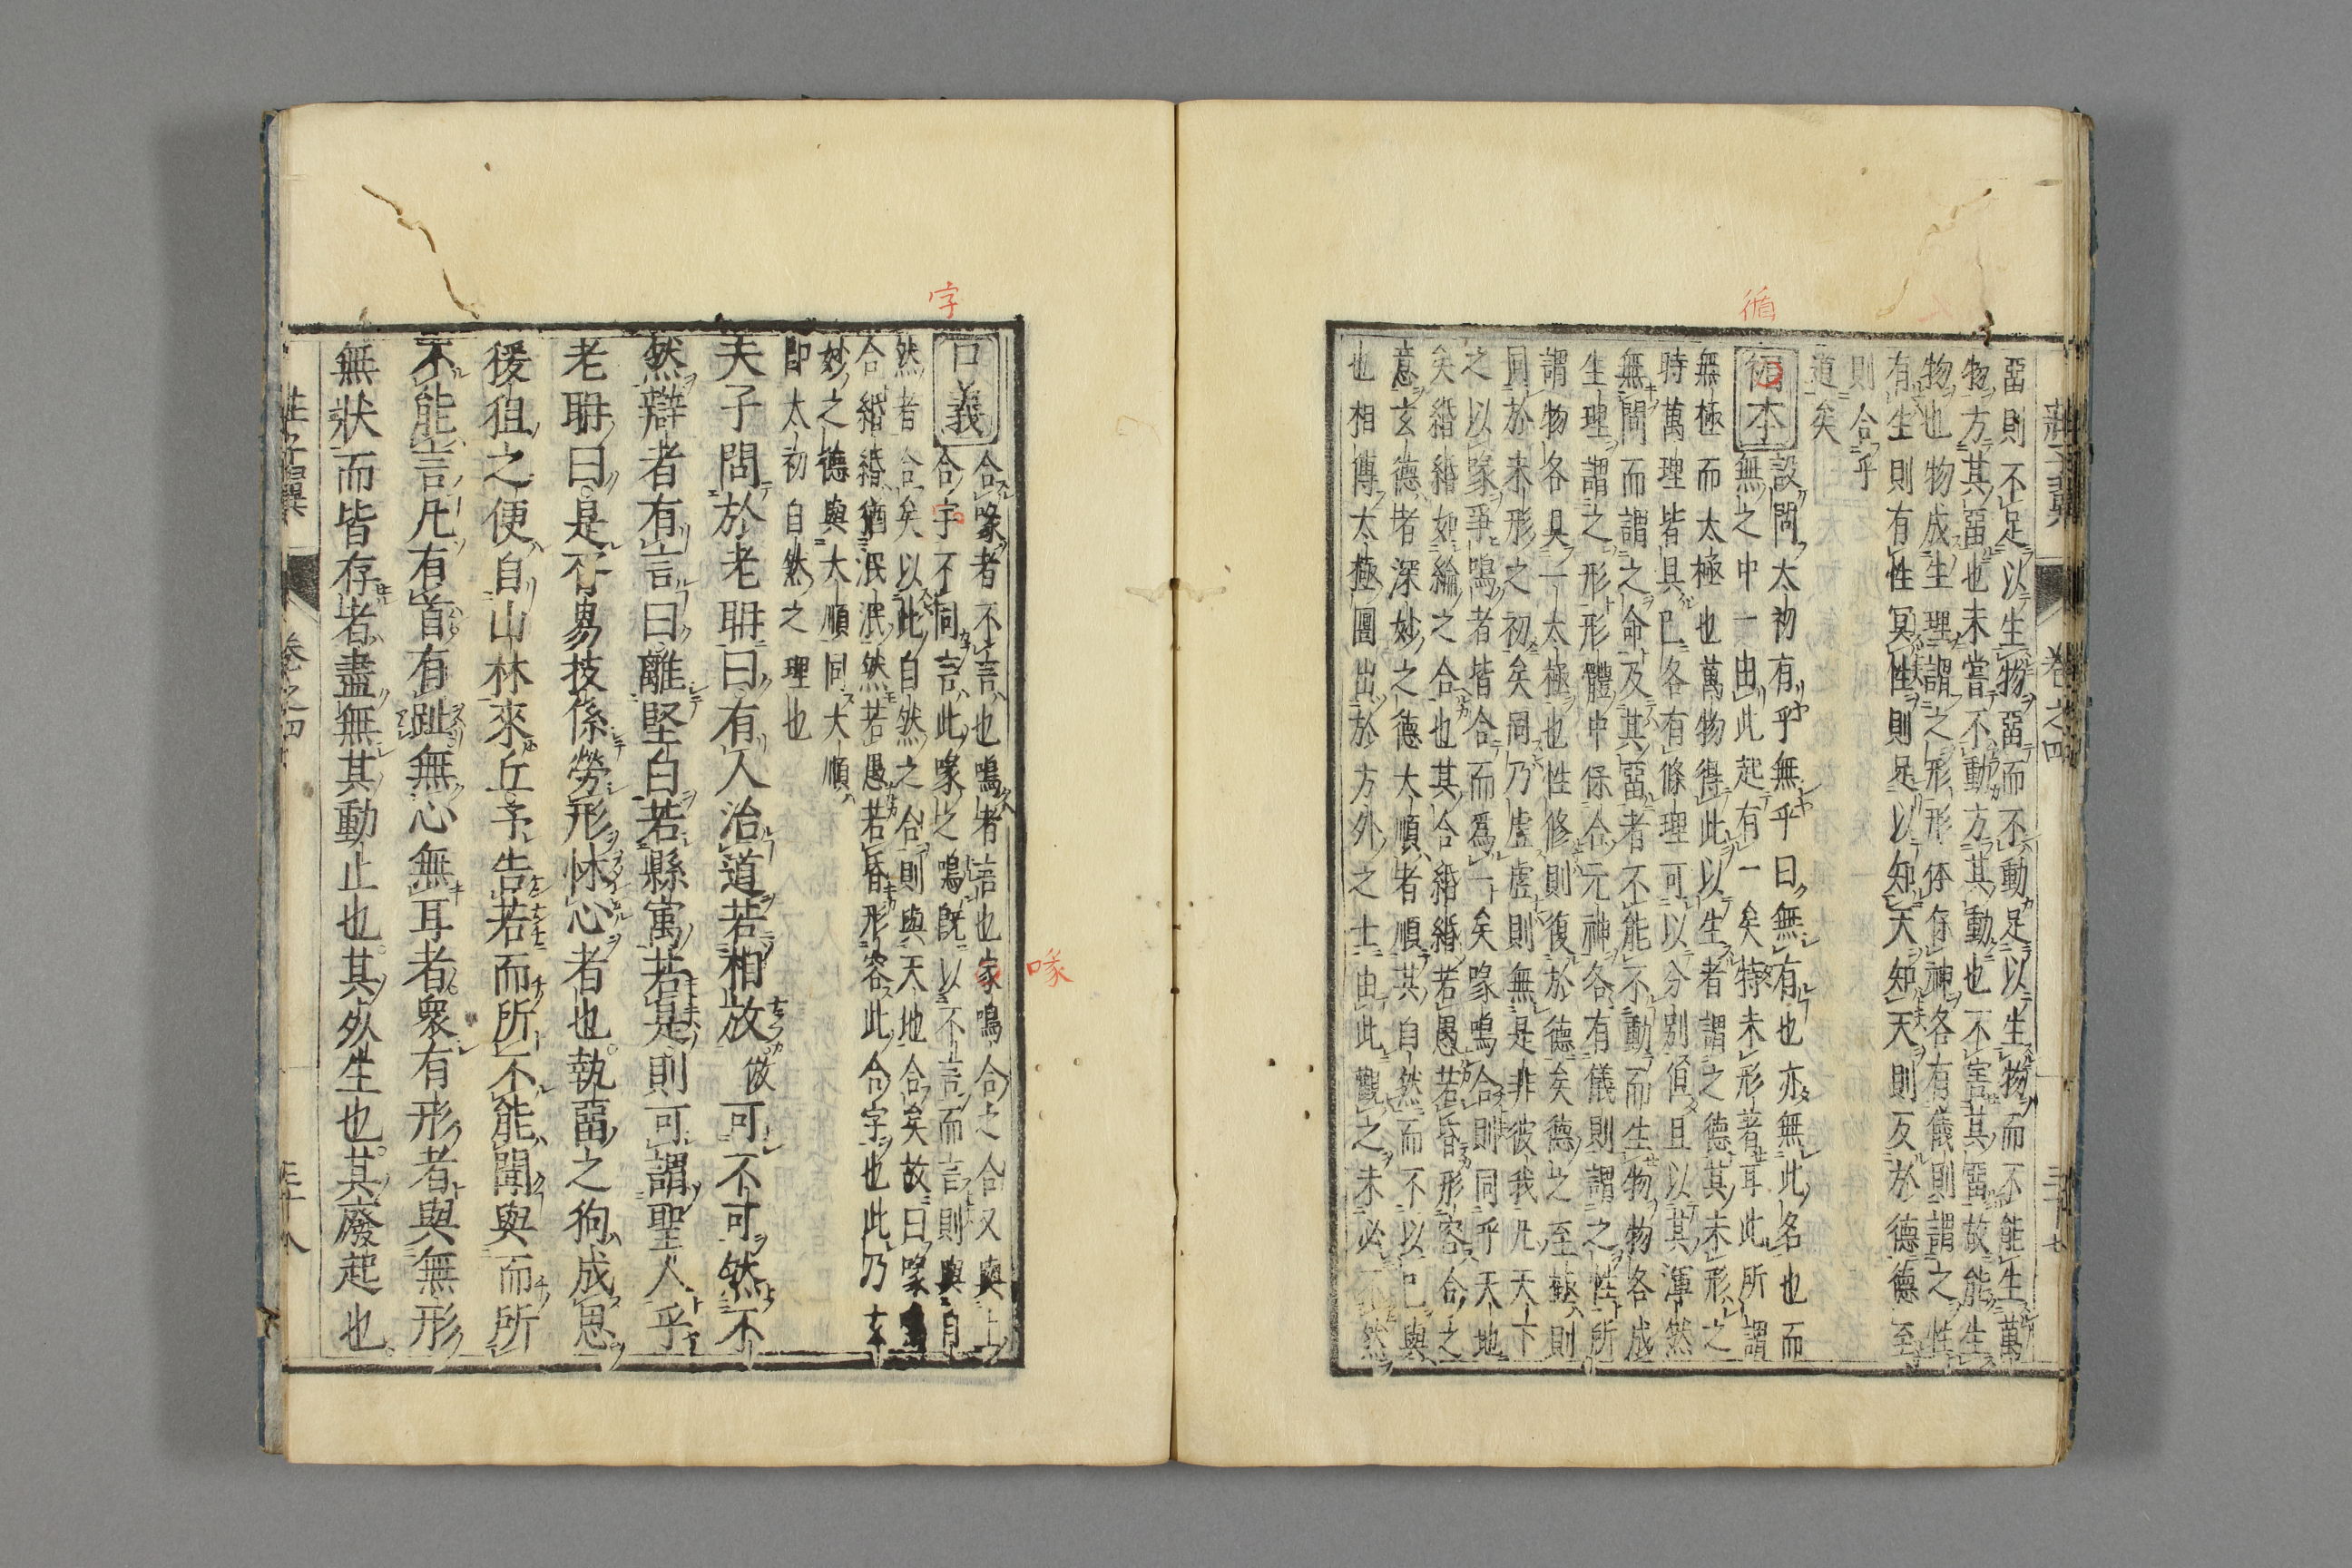 莊子翼
卷之四
三十七
畱則不足以生物畱而不動足以生物而不能生萬
物方其畱也未嘗不動方其動也不害其畱故能生
物也物成生理謂之形形体保神各有儀則謂之性
有生則有性冥性則足以知天知天則反於德德至
則合乎
道矣
循
循本
設問太初有乎無乎曰無有也亦無此名也而
無之中一由此起有一矣特未形著耳此所謂
無極而太極也萬物得此以生者謂之德其未形之
時萬理皆具已各有條理可以分別但且以其渾然
無間而謂之命及其畱者不能不動而生物物各成
生理謂之形形體中保合元神各有儀則謂之性所
謂物各具一太極也性修則復於德矣德之至蓺則
同於未形之初矣同乃虛虛則無是非彼我凡天下
之以喙爭鳴者皆合而爲一矣喙鳴合則同乎天地
矣緡緡如綸之合也其合緡緡若愚若昏形容合之
意玄德者深妙之德大順者順其自然而不以已與
也相傳太極圖出於方外之士由此觀之未必不然
字
口義
合喙者不言也鳴者言也喙鳴合之合又與上
合字不同言此喙之鳴既以不言而言則與自
喙
然者合矣以此自然之合則與天地合矣故曰喙
合緡緡猶泯泯然若愚若昏形容此合字也此乃玄
妙之德與大順同大順
卽太初自然之理也
夫子問於老聃曰有人治道若相放彼可不可然不
然辯者有言曰離堅白若縣寓若是則可謂聖人乎
老聃曰是胥易技係勞形怵心者也執畱之狗成思
猨狙之便自山林來丘予告若而所不能聞與而所
不能言凡有首有趾無心無耳者衆有形者與無形
無狀而皆存者盡無其動止也其死生也其廢起也
莊子翼
卷之四
三十八